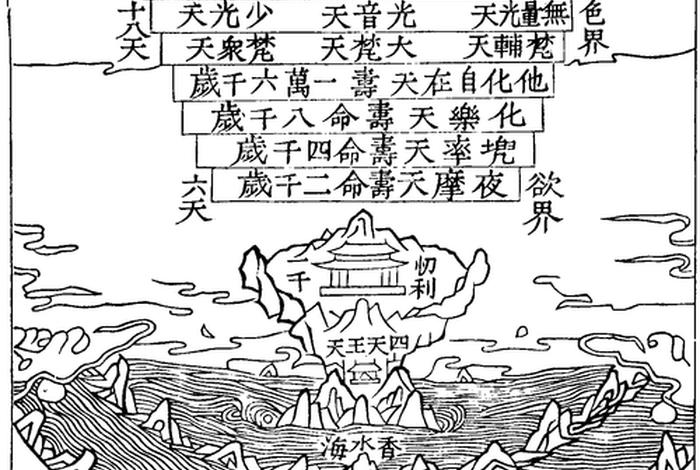 色界
無量光天 光音天 少光天
十八天
梵輔天 大梵天 梵衆天
他化自在天壽一萬六千歲
化樂天壽命八千歲
兜率天壽命四千歲
欲界
夜摩天壽命二千歲
六天
忉利
一千
四天王天
香水海